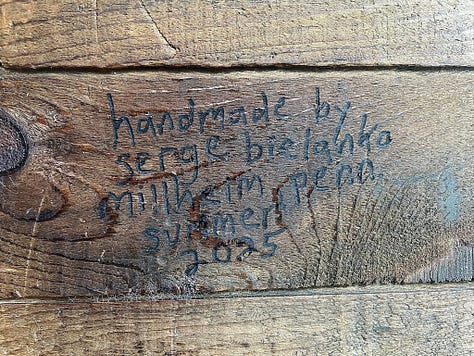 handmade by
serge bielanko
millheim, penn.
summer,
2025